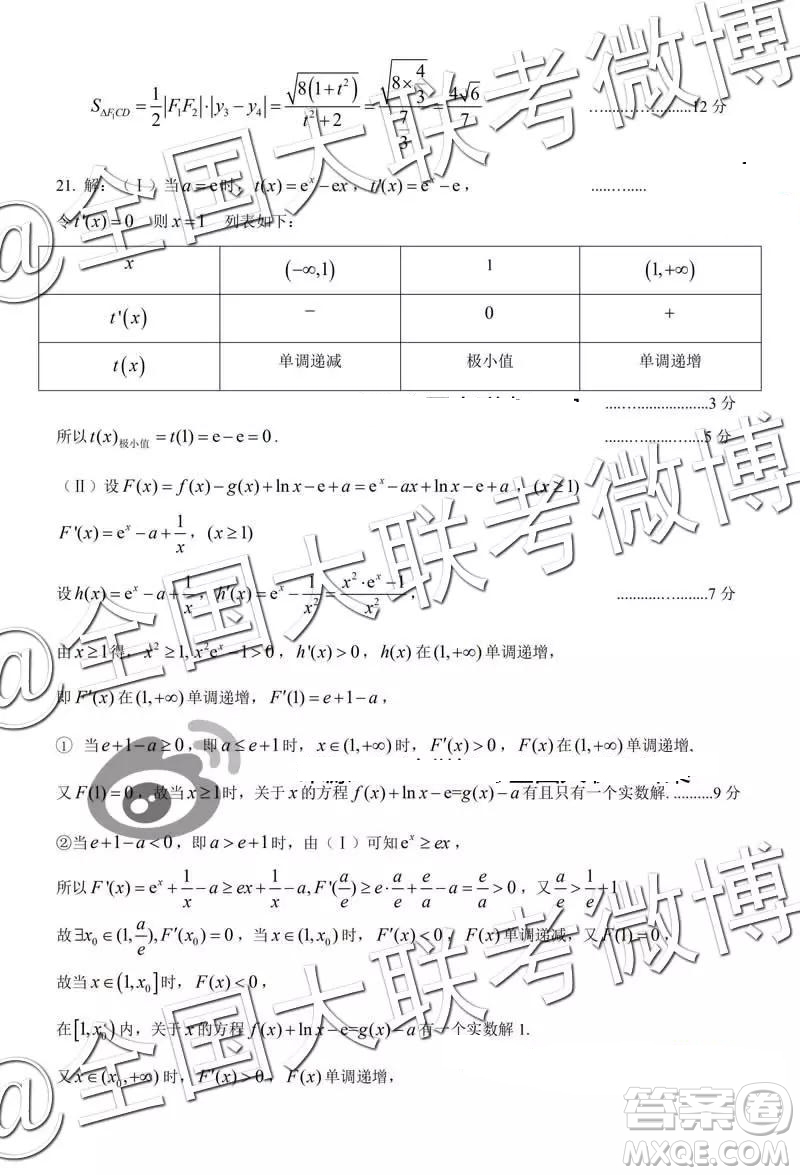 S_{ΔF₁CD} = 1/2|F₁F₂|·|y₃−y₄| = √(8(1+t²))/(t²+2) = √(8×4/3)/(7/3) = 4√6/7 ………………12 分
21. 解：（Ⅰ）当 a=e 时，t(x)=eˣ−ex，t'(x)=eˣ−e， ...........
令 t'(x)=0 则 x=1 列表如下：
x (−∞,1) 1 (1,+∞)
t'(x) − 0 +
t(x) 单调递减 极小值 单调递增
.........................3 分
所以 t(x)极小值=t(1)=e−e=0. ....................5 分
（Ⅱ）设 F(x)=f(x)−g(x)+ln x−e+a=eˣ−ax+ln x−e+a，(x≥1)
F'(x)=eˣ−a+1/x，(x≥1)
设 h(x)=eˣ−a+1/x，h'(x)=eˣ−1/x²=(x²·eˣ−1)/x²， .....................7 分
由 x≥1 得，x²≥1, x²eˣ−1>0，h'(x)>0，h(x) 在 (1,+∞) 单调递增，
即 F'(x) 在 (1,+∞) 单调递增，F'(1)=e+1−a，
① 当 e+1−a≥0，即 a≤e+1 时，x∈(1,+∞) 时，F'(x)>0，F(x) 在 (1,+∞) 单调递增，
又 F(1)=0，故当 x≥1 时，关于 x 的方程 f(x)+ln x−e=g(x)−a 有且只有一个实数解. ..........9 分
②当 e+1−a<0，即 a>e+1 时，由（Ⅰ）可知 eˣ≥ex，
所以 F'(x)=eˣ+1/x−a≥ex+1/x−a, F'(a/e)≥e·a/e+e/a−a=e/a>0，又 a/e>1/e+1
故∃x₀∈(1,a/e), F'(x₀)=0，当 x∈(1,x₀) 时，F'(x)<0，F(x) 单调递减，又 F(1)=0，
故当 x∈(1,x₀] 时，F(x)<0，
在 [1,x₀) 内，关于 x 的方程 f(x)+ln x−e=g(x)−a 有一个实数解 1.
又 x∈(x₀,+∞) 时，F'(x)>0，F(x) 单调递增，
@全国大联考微博
@全国大联考微博
@全国大联考微博
答案卷
MXQE.COM